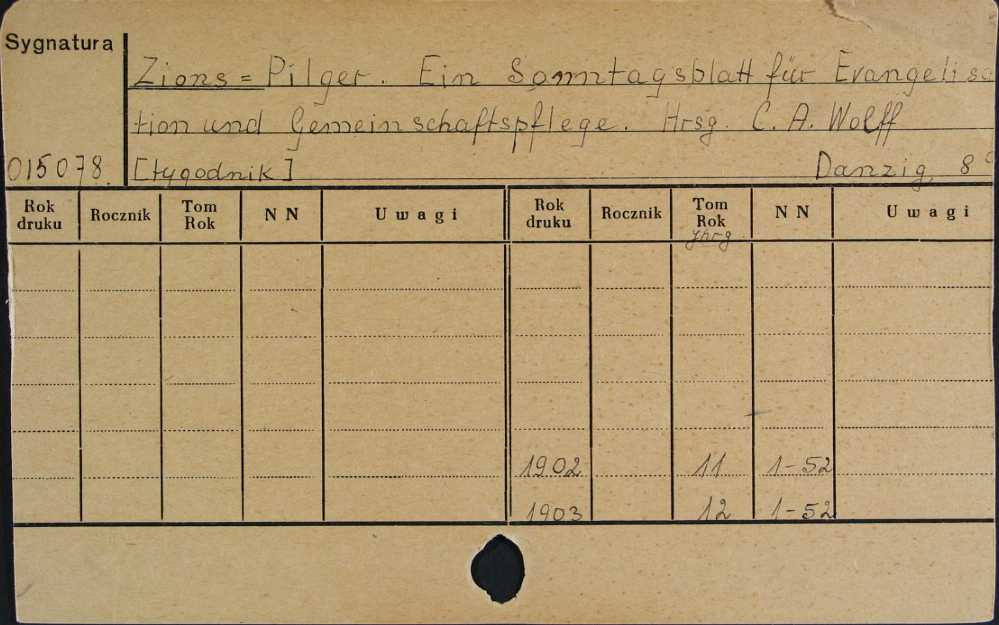 Sygnatura
Zions = Pilger. Ein Sonntagsblatt für Evangelisa
tion und Gemeinschaftspflege. Hrsg. C. A. Wolff
015078. [tygodnik] Danzig, 8°
Rok druku Rocznik Tom Rok NN Uwagi Rok druku Rocznik Tom Rok Jhrg NN Uwagi
1902 11 1-52
1903 12 1-52